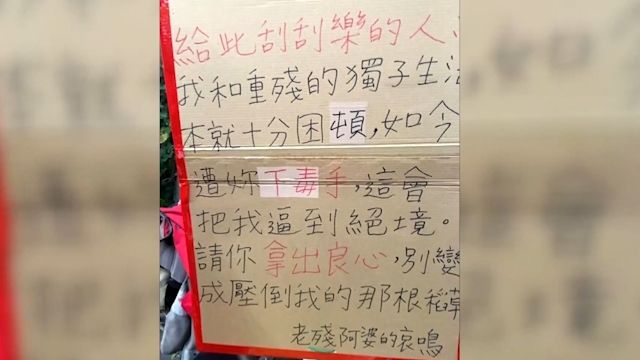 給此刮刮樂的人、
我和重殘的獨子生活
本就十分困頓,如今
遭妳下毒手,這會
把我逼到絕境。
請你拿出良心,別變
成壓倒我的那根稻草
老殘阿婆的哀鳴